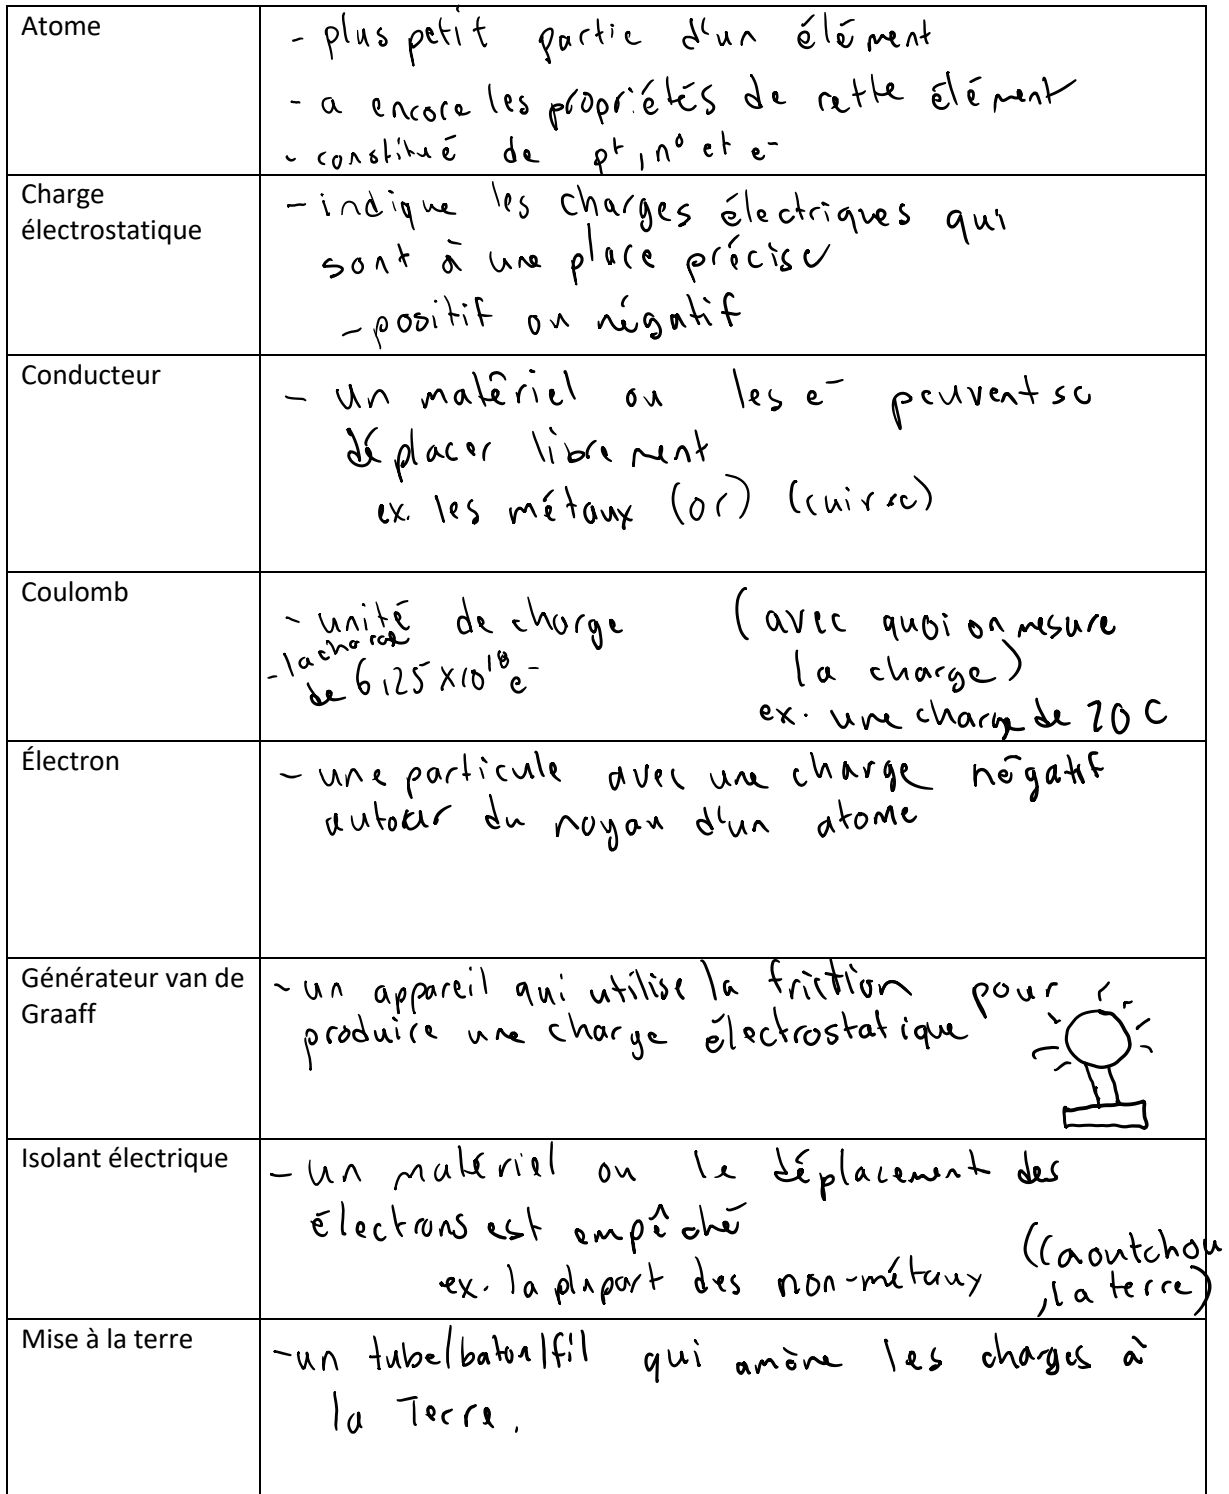 Atome
- plus petit partie d'un élément
- a encore les propriétés de cette élément
- constitué de p⁺, n⁰ et e⁻
Charge
électrostatique
- indique les charges électriques qui
sont à une place précise
- positif ou négatif
Conducteur
- un matériel ou les e⁻ peuvent se
déplacer librement
ex. les métaux (or) (cuivre)
Coulomb
- unité de charge
- la charge
de 6,25 x 10¹⁸ e⁻
(avec quoi on mesure
la charge)
ex. une charge de 20 C
Électron
- une particule avec une charge négatif
autour du noyau d'un atome
Générateur van de
Graaff
- un appareil qui utilise la friction pour
produire une charge électrostatique
Isolant électrique
- un matériel ou le déplacement des
électrons est empêché
ex. la plupart des non-métaux
(Caoutchou
, la terre)
Mise à la terre
- un tube/baton/fil qui amène les charges à
la Terre.